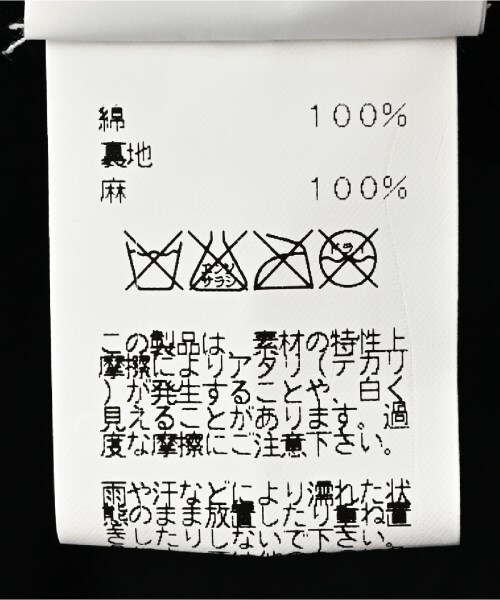 綿 100%
裏地
麻 100%
エンソ
サラシ
ドライ
この製品は、素材の特性上
摩擦によりアタリ(テカリ
)が発生することや、白く
見えることがあります。過
度な摩擦にご注意下さい。
雨や汗などにより濡れた状
態のまま放置したり重ね置
きしたりしないで下さい。